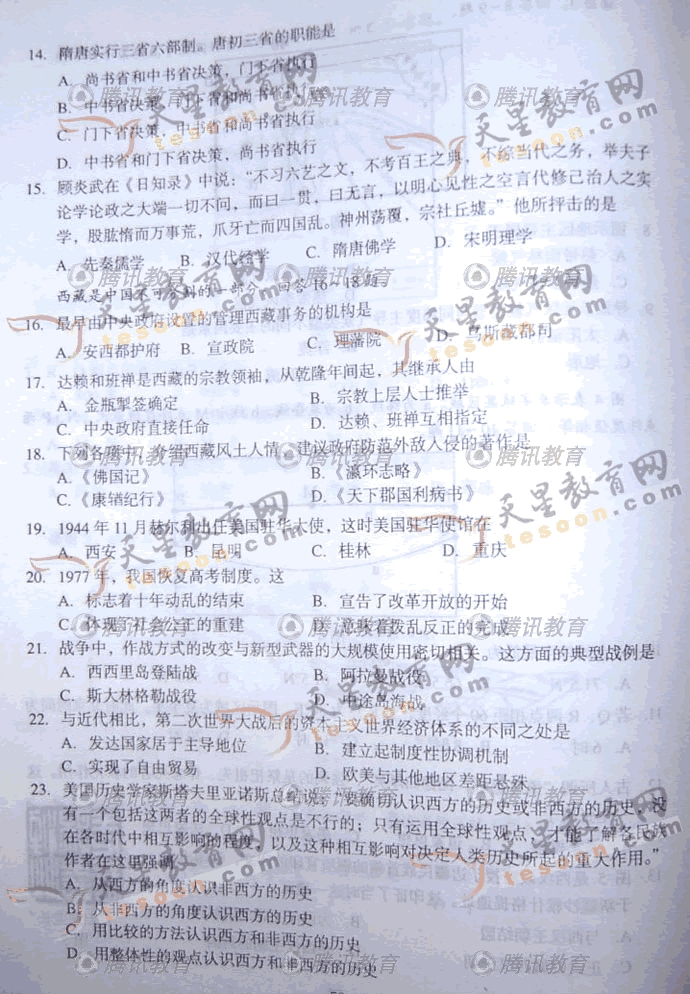 14. 隋唐实行三省六部制。唐初三省的职能是
A. 尚书省和中书省决策，门下省执行
B. 中书省决策，门下省和尚书省执行
C. 门下省决策，中书省和尚书省执行
D. 中书省和门下省决策，尚书省执行
15. 顾炎武在《日知录》中说：“不习六艺之文，不考百王之典，不综当代之务，举夫子
论学论政之大端一切不问，而曰一贯，曰无言，以明心见性之空言代修己治人之实
学，股肱惰而万事荒，爪牙亡而四国乱。神州荡覆，宗社丘墟。”他所抨击的是
A. 先秦儒学 B. 汉代经学 C. 隋唐佛学 D. 宋明理学
西藏是中国不可分割的一部分。回答16－18题
16. 最早由中央政府设置的管理西藏事务的机构是
A. 安西都护府 B. 宣政院 C. 理藩院 D. 乌斯藏都司
17. 达赖和班禅是西藏的宗教领袖，从乾隆年间起，其继承人由
A. 金瓶掣签确定 B. 宗教上层人士推举
C. 中央政府直接任命 D. 达赖、班禅互相指定
18. 下列各项中，介绍西藏风土人情，建议政府防范外敌入侵的著作是
A.《佛国记》 B.《瀛环志略》
C.《康輶纪行》 D.《天下郡国利病书》
19. 1944年11月赫尔利出任美国驻华大使，这时美国驻华使馆在
A. 西安 B. 昆明 C. 桂林 D. 重庆
20. 1977年，我国恢复高考制度。这
A. 标志着十年动乱的结束 B. 宣告了改革开放的开始
C. 体现了社会公正的重建 D. 意味着拨乱反正的完成
21. 战争中，作战方式的改变与新型武器的大规模使用密切相关。这方面的典型战例是
A. 西西里岛登陆战 B. 阿拉曼战役
C. 斯大林格勒战役 D. 中途岛海战
22. 与近代相比，第二次世界大战后的资本主义世界经济体系的不同之处是
A. 发达国家居于主导地位 B. 建立起制度性协调机制
C. 实现了自由贸易 D. 欧美与其他地区差距悬殊
23. 美国历史学家斯塔夫里亚诺斯总结说：“要确切认识西方的历史或非西方的历史，没
有一个包括这两者的全球性观点是不行的；只有运用全球性观点，才能了解各民族
在各时代中相互影响的程度，以及这种相互影响对决定人类历史所起的重大作用。”
作者在这里强调
A. 从西方的角度认识非西方的历史
B. 从非西方的角度认识西方的历史
C. 用比较的方法认识西方和非西方的历史
D. 用整体性的观点认识西方和非西方的历史
腾讯教育
天星教育网
tesoon.com